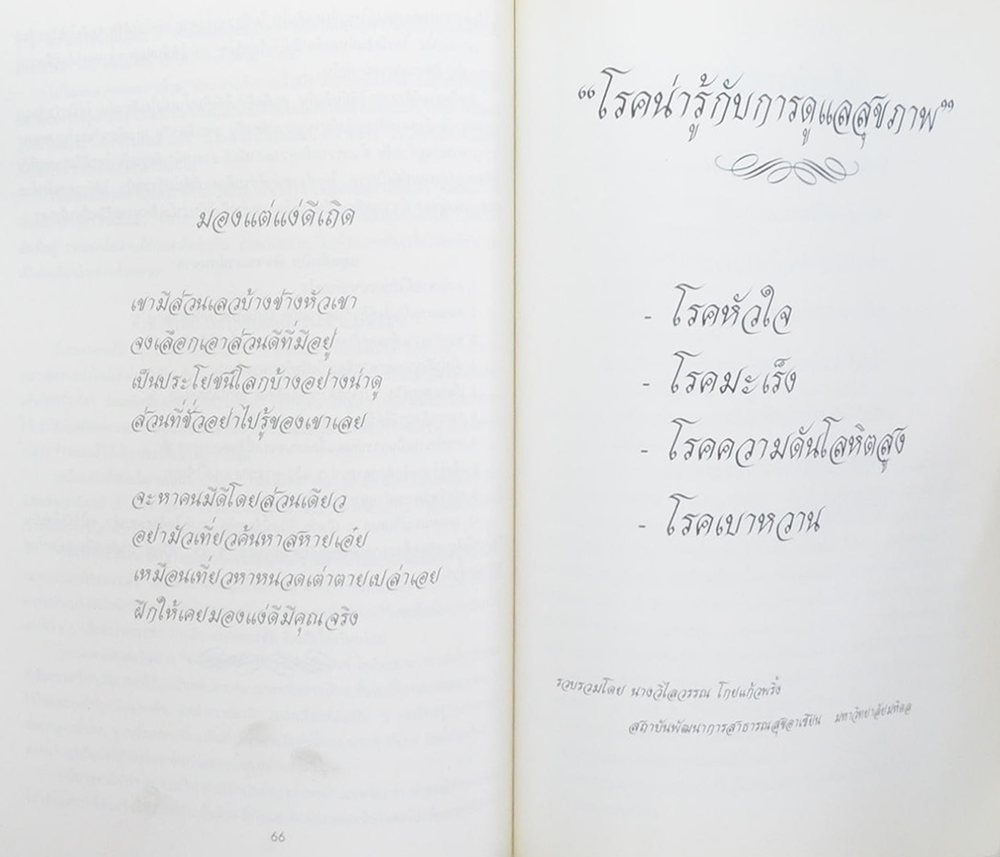 มองแต่แง่ดีเถิด
เขามีส่วนเลวบ้างช่างหัวเขา
จงเลือกเอาส่วนดีที่มีอยู่
เป็นประโยชน์โลกบ้างอย่างน่าดู
ส่วนที่ชั่วอย่าไปรู้ของเขาเลย
จะหาคนมีดีโดยส่วนเดียว
อย่ามัวเที่ยวค้นหาสหายเอ๋ย
เหมือนเที่ยวหาหนวดเต่าตายเปล่าเอย
ฝึกให้เคยมองแง่ดีมีคุณจริง
66
“โรคน่ารู้กับการดูแลสุขภาพ”
- โรคหัวใจ
- โรคมะเร็ง
- โรคความดันโลหิตสูง
- โรคเบาหวาน
รวบรวมโดย นางวิไลวรรณ โกยแก้วพริ้ง
สถาบันพัฒนาการสาธารณสุขอาเซียน มหาวิทยาลัยมหิดล